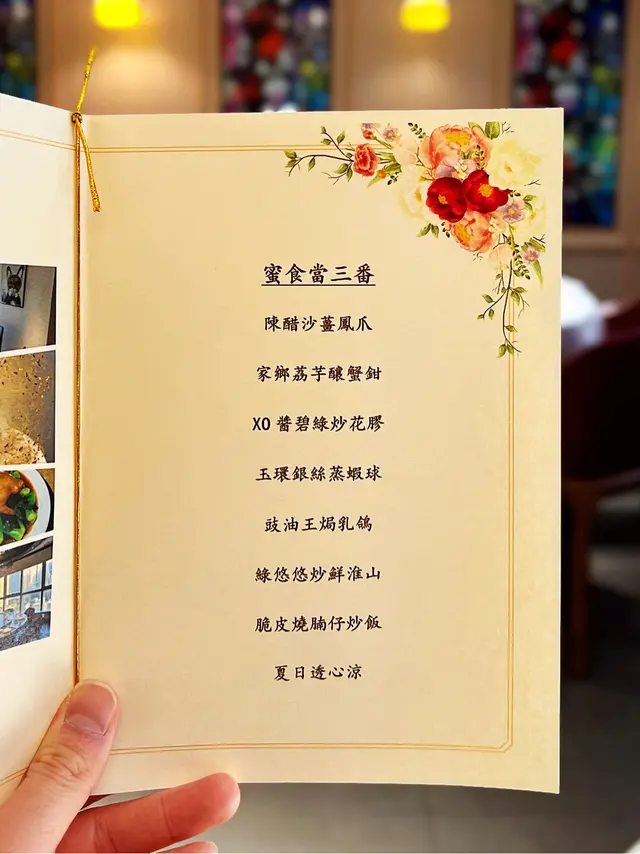 蜜食當三番
陳醋沙薑鳳爪
家鄉荔芋釀蟹鉗
XO 醬碧綠炒花膠
玉環銀絲蒸蝦球
豉油王焗乳鴿
綠悠悠炒鮮淮山
脆皮燒腩仔炒飯
夏日透心涼